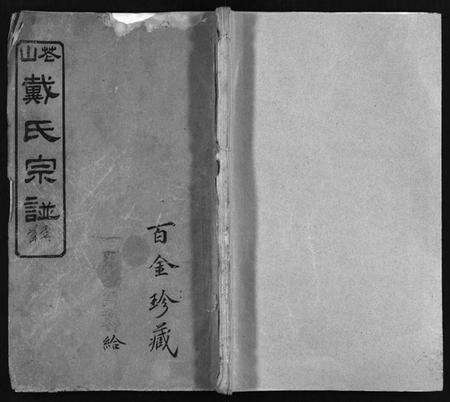 苍山
戴氏宗譜
百金珍藏
給